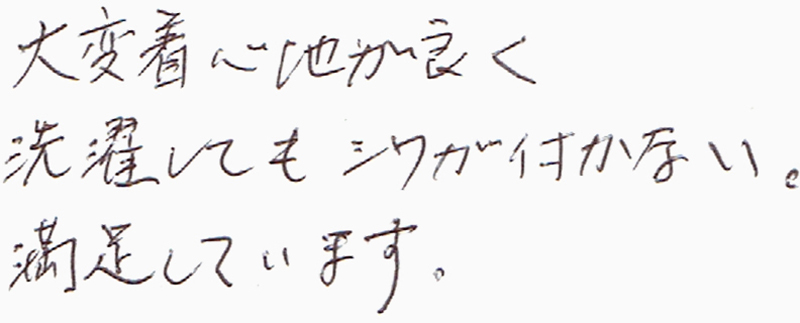 大変着心地が良く
洗濯してもシワが付かない。
満足しています。